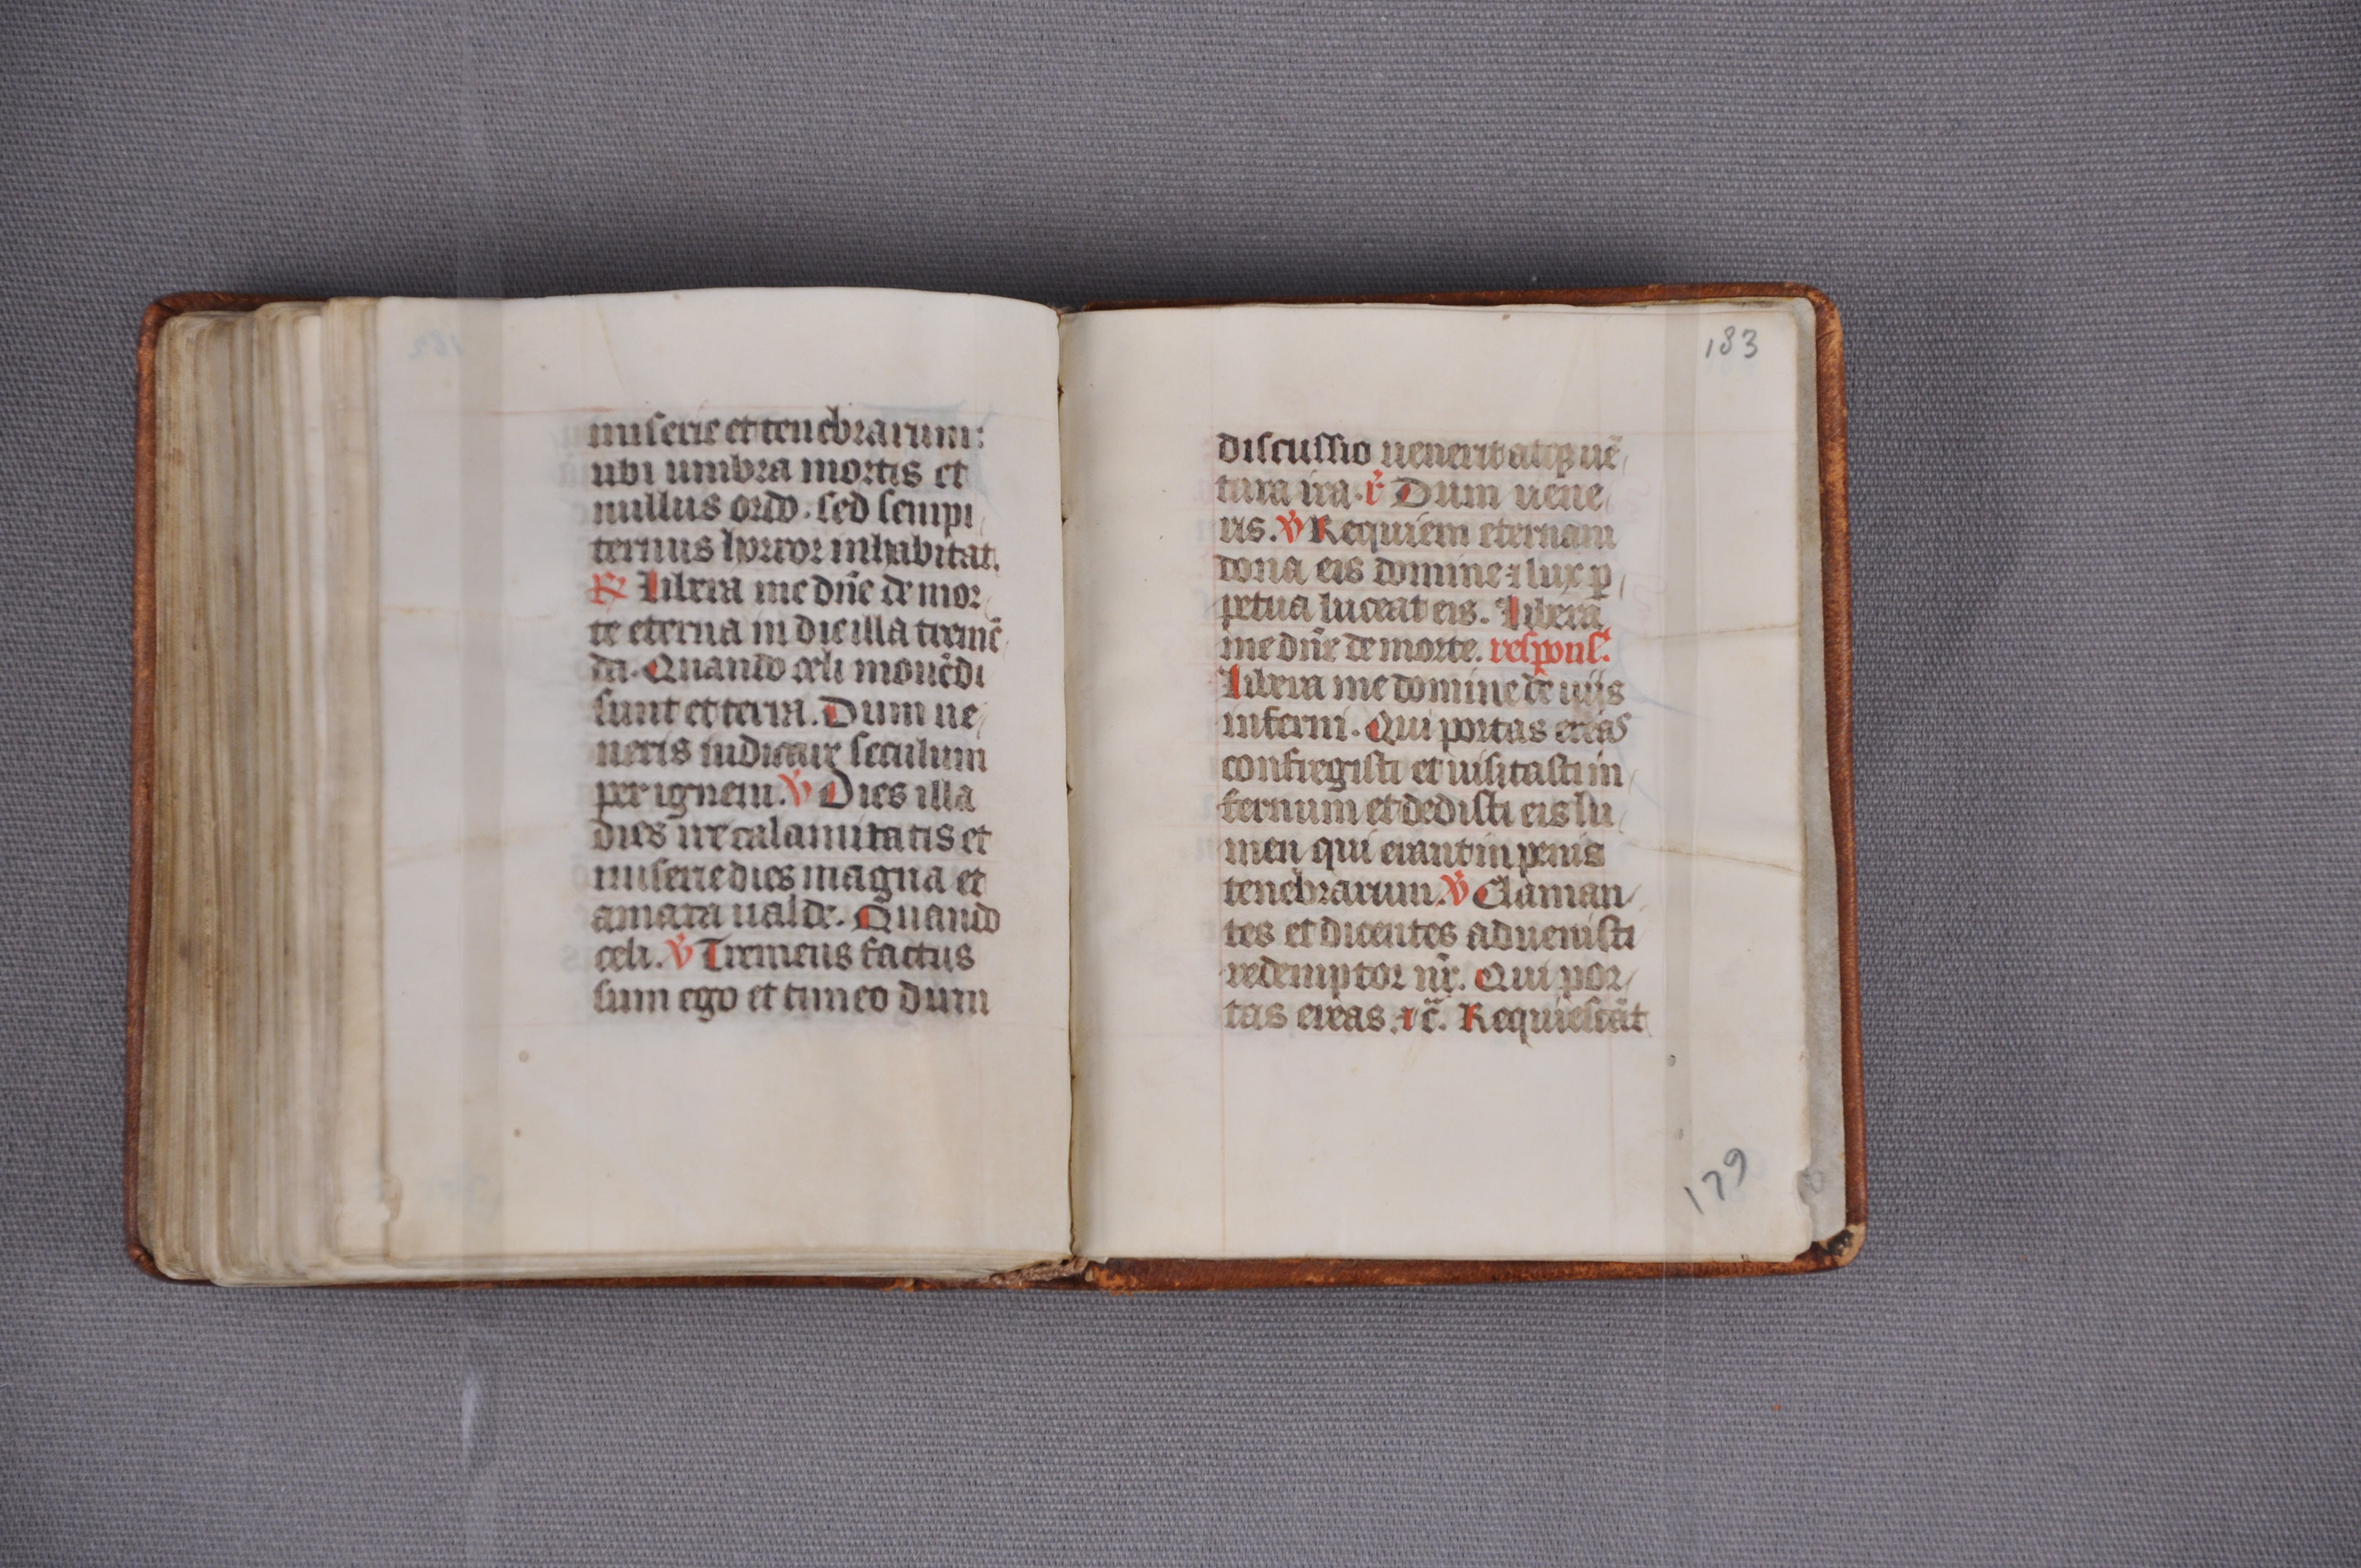 miserie et tenebrarum:
ubi umbra mortis et
nullus ordo. sed sempi/
ternus horror inhabitat.
℟ Libera me dn̄e de mor/
te eterna in die illa tremē/
da. Quando celi mouēdi
sunt et terra. Dum ue/
neris iudicare seculum
per ignem. ℣ Dies illa
dies ire calamitatis et
miserie dies magna et
amara ualde. Quando
celi. ℣ Tremens factus
sum ego et timeo dum
183
discussio uenerit atqꝫ uē/
tura ira. ř Dum uene/
ris. ℣ Requiem eternam
dona eis domine ⁊ lux ꝑ/
petua luceat eis. Libera
me dn̄e de morte. respons̄.
Libera me domine de uijs
inferni. Qui portas ereas
confregisti et uisitasti in/
fernum et dedisti eis lu/
men qui erant in penis
tenebrarum. ℣ Claman/
tes et dicentes aduenisti
redemptor nr̄. Qui por/
tas ereas. ⁊ c̄. Requiescāt
179